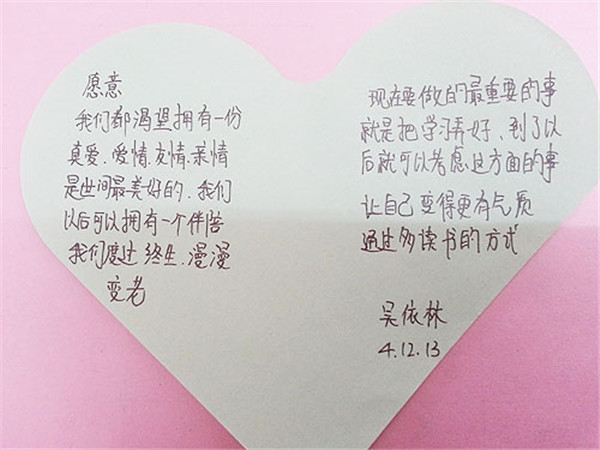 愿意
我们都渴望拥有一份
真爱、爱情、友情、亲情
是世间最美好的、我们
以后可以拥有一个伴陪
我们度过终生、漫漫
变老
现在要做的最重要的事
就是把学习弄好、到了以
后就可以考虑这方面的事
让自己变得更有气质
通过多读书的方式
吴依林
4.12.13